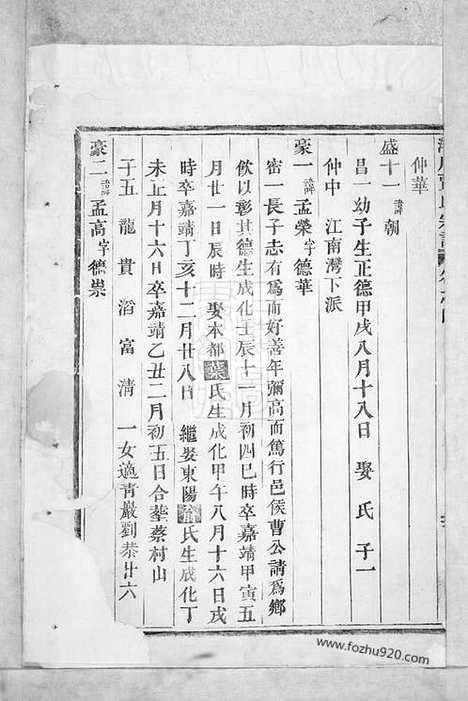 仲華
盛十一 諱 朝
昌一幼子生正德甲戌八月十八日 娶 氏 子一
仲中 江南灣下派
豪一 諱 孟榮 字 德華
密一長子志有為而好善年彌高而篤行邑侯曹公請為鄉
飲以彰其德生成化壬辰十一月初四巳時卒嘉靖甲寅五
月廿一日辰時 娶本都葉氏生成化甲午八月十六日戌
時卒嘉靖丁亥十二月廿八日 繼娶東陽氏生成化丁
未正月十六日卒嘉靖乙丑二月初五日合塟蔡村山
子五 龍 貴 滔 富 清 一女適青巖劉恭廿六
豪二 諱 孟高 字 德崇
www.fozhu920.com